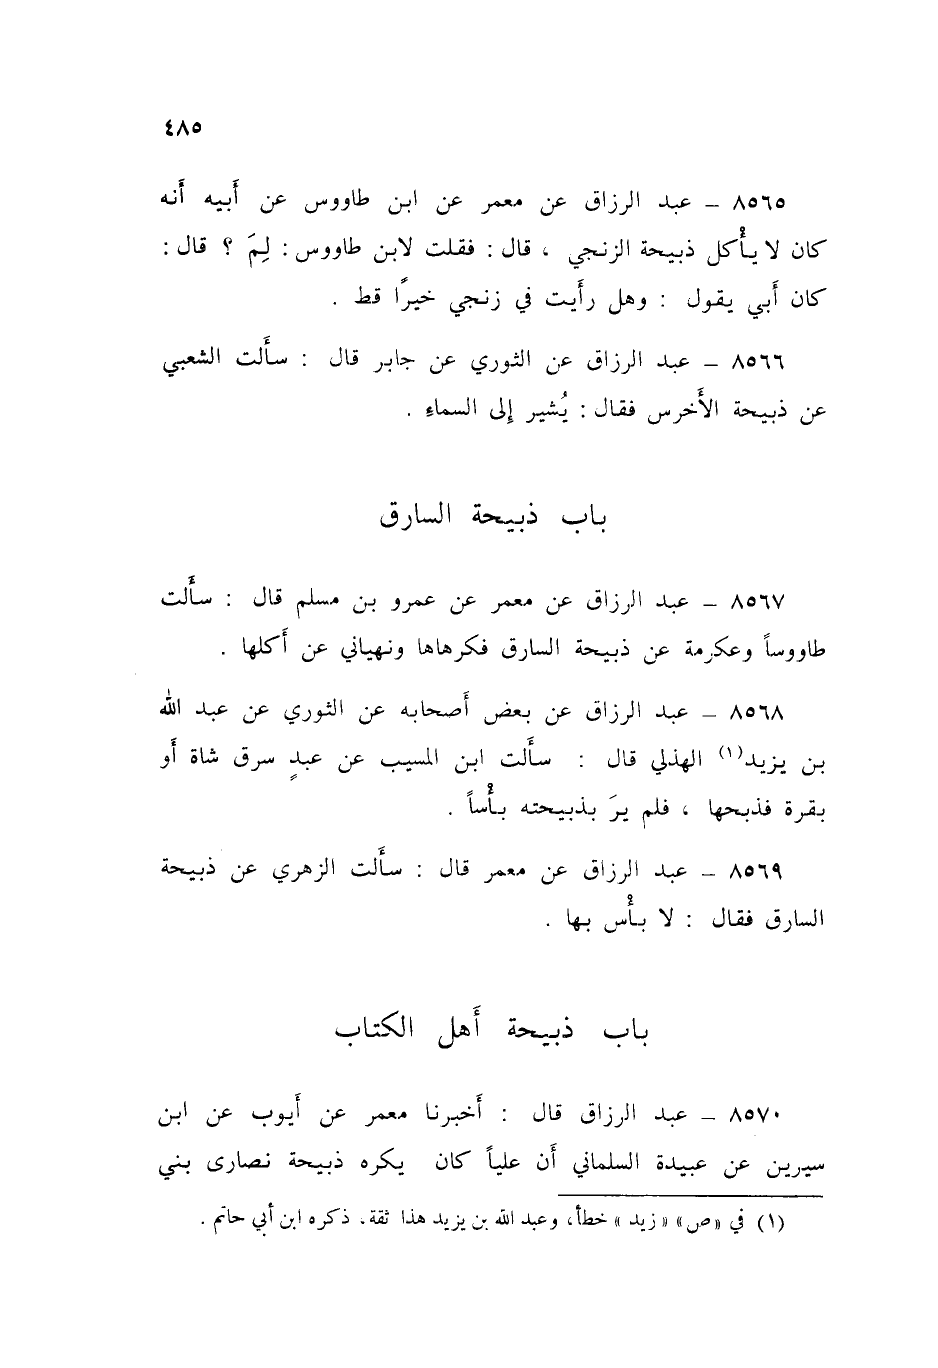 ٤٨٥
٨٥٦٥ – عبد الرزاق عن معمر عن ابن طاووس عن أَبيه أَنه
كان لا يأْكل ذبيحة الزنجي ، قال : فقلت لابن طاووس : لِمَ ؟ قال :
كان أَبي يقول : وهل رأَيت في زنجي خيرًا قط .
٨٥٦٦ – عبد الرزاق عن الثوري عن جابر قال : سأَلت الشعبي
عن ذبيحة الأَخرس فقال : يُشير إلى السماء .
باب ذبيحة السارق
٨٥٦٧ – عبد الرزاق عن معمر عن عمرو بن مسلم قال : سأَلت
طاووساً وعكرمة عن ذبيحة السارق فكرهاها ونهياني عن أَكلها .
٨٥٦٨ – عبد الرزاق عن بعض أَصحابه عن الثوري عن عبد الله
بن يزيد(١) الهذلي قال : سأَلت ابن المسيب عن عبدٍ سرق شاة أَو
بقرة فذبحها ، فلم يرَ بذبيحته بأْساً .
٨٥٦٩ – عبد الرزاق عن معمر قال : سأَلت الزهري عن ذبيحة
السارق فقال : لا بأْس بها .
باب ذبيحة أَهل الكتاب
٨٥٧٠ – عبد الرزاق قال : أَخبرنا معمر عن أَيوب عن ابن
سيرين عن عبيدة السلماني أَن علياً كان يكره ذبيحة نصارى بني
(١) في «ص» «زيد» خطأ، وعبد الله بن يزيد هذا ثقة، ذكره ابن أبي حاتم .